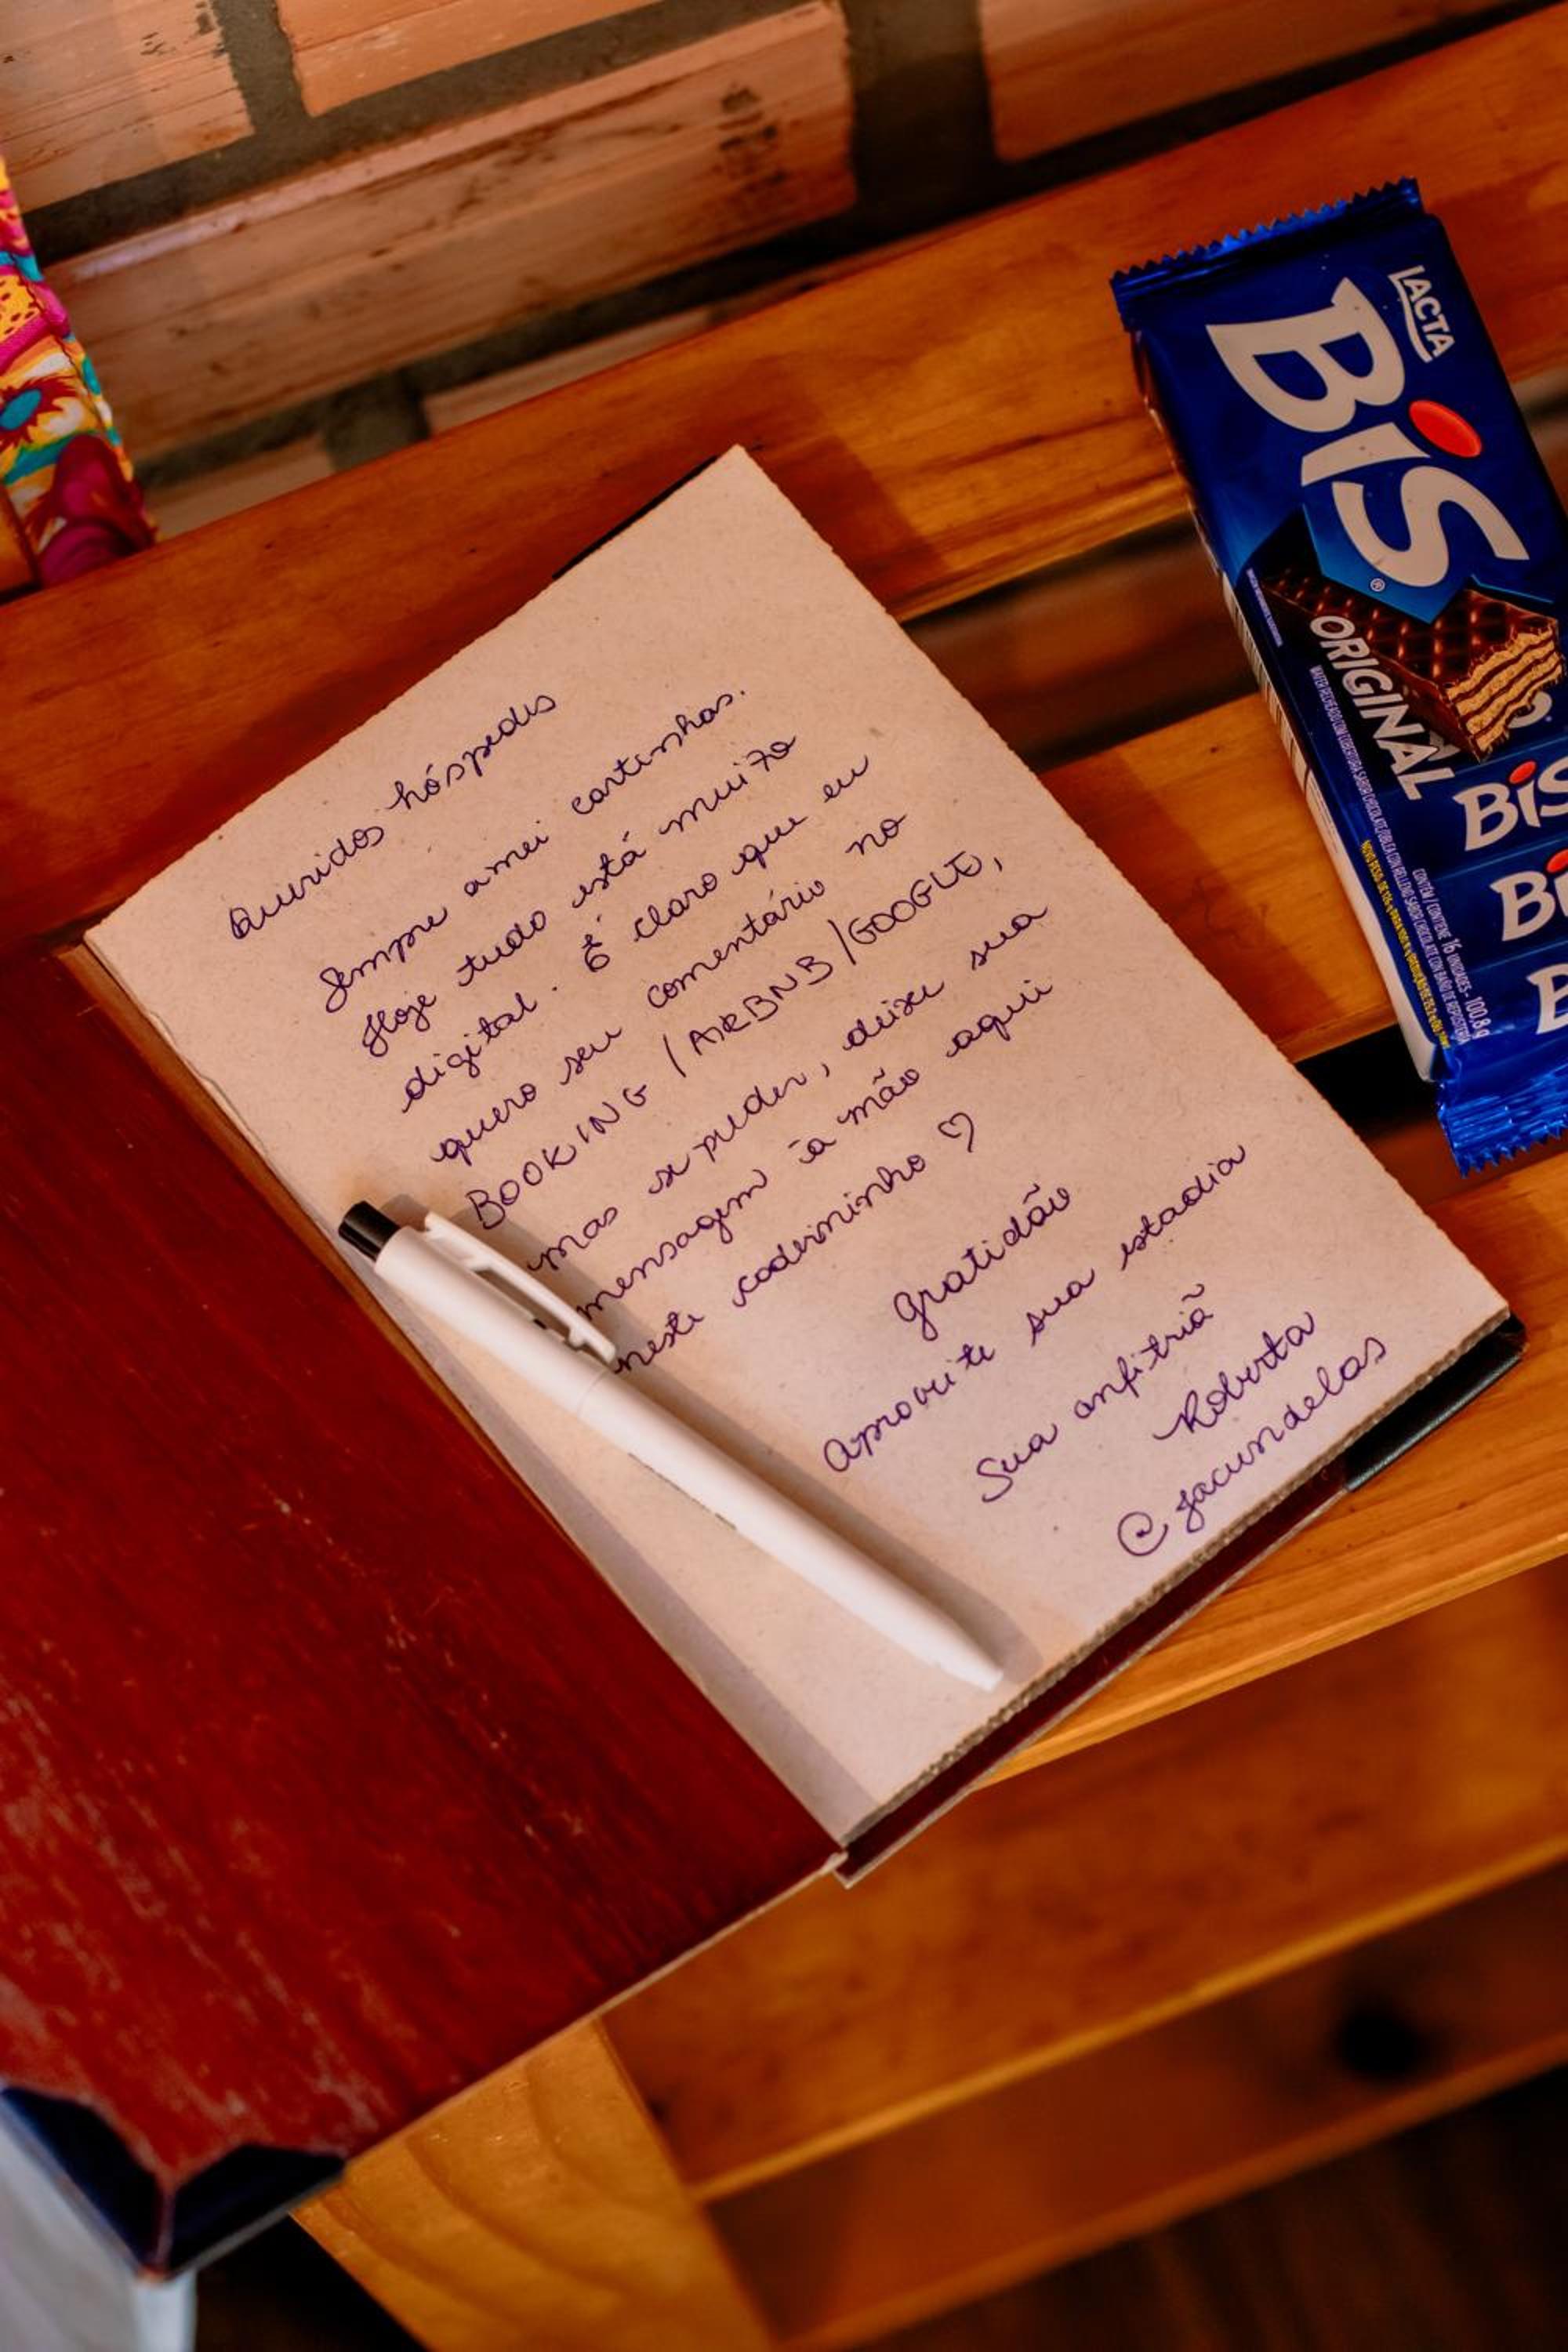 Queridos hóspedes
Sempre amei cartinhas.
Hoje tudo está muito
digital. É claro que eu
quero seu comentário no
BOOKING / AIRBNB / GOOGLE,
mas se puder, deixe sua
mensagem à mão aqui
neste caderninho ♡
Gratidão
Aproveite sua estadia
Sua anfitriã
Roberta
@ jacundelas
LACTA
BIS
®
ORIGINAL
CONTÉM / CONTIENE 16 UNIDADES - 100,8 g
BIS
BI
B